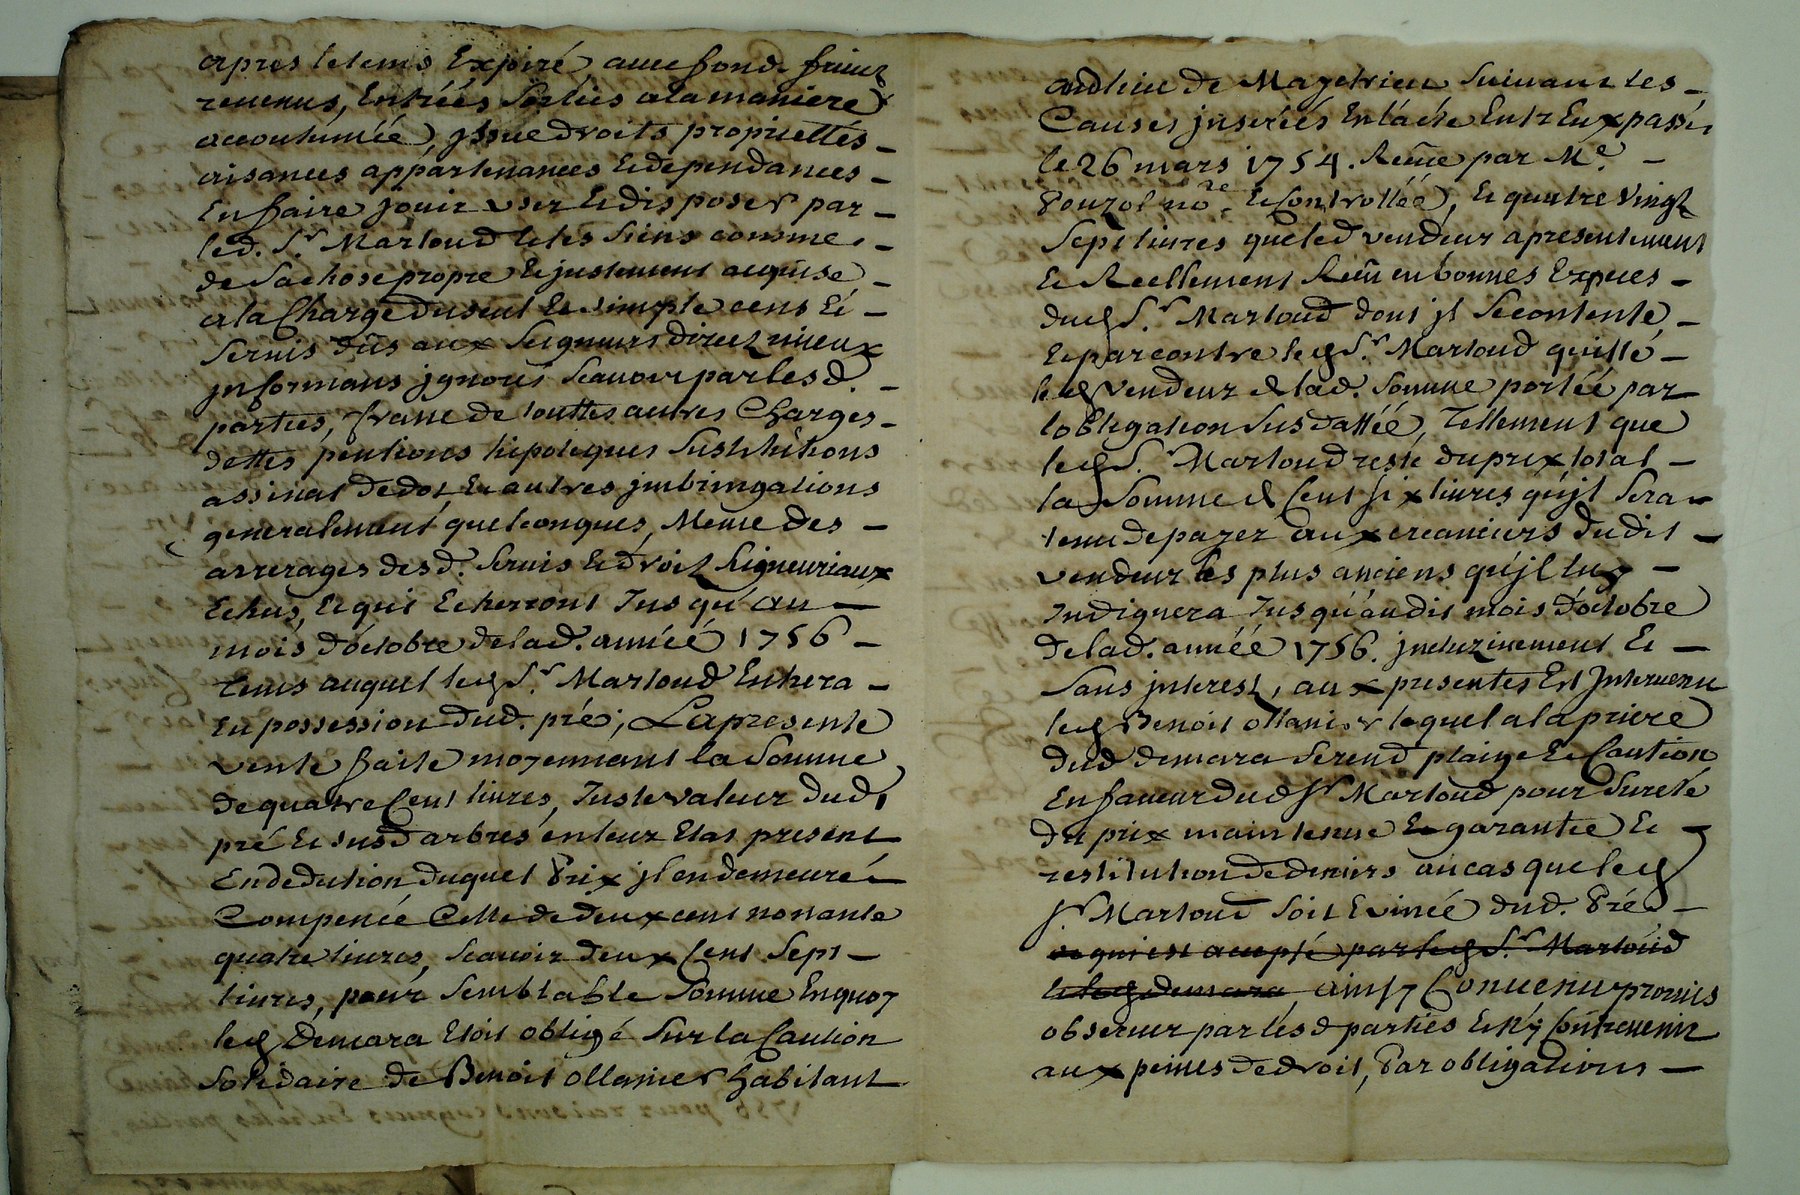 apres le tems Expiré, avec fond. fruits
revenus, Entrées Sorties ala maniere
accoutumée, jssue droits proprietés -
aisances appartenances Et dependances -
En faire jouir user Et disposer par -
led. Sr. Marloud Et les Siens comme -
de Sa chose propre Et justement acquise -
ala Charge du seul Et simple cens Et -
Servis dûs aux Seigneurs direct
jnformans jgnorés Scavoir par lesd. -
parties, franc de touttes autres Charges -
dettes pentions hipoteques Substitutions
assinat de dot Et autres jmbringations
generalement quelconques, Meme des -
arrerages desd. Servis Et droit Seigneuriaux
Echus, Et qui Echerront Jusqu'au -
mois d'octobre de lad. année 1756 -
tems auquel led Sr. Marloud Entrera -
En possession dud. pré; La presente
vente faite moyennant la Somme
de quatre Cent livres, Juste valeur dud,
pré Et susd arbres en leur Etat present
En dedution duquel Prix jl en demeuré -
Compencée Celle de deux cent nonante
quatre livres, Scavoir deux Cent Sept -
livres, pour Semblable Somme En quoy
led Demara Etoit obligé Sur la Caution
Solidaire de Benoit ollanier habitant
audlieu de Mazetrieu Suivant les -
Causes jnserées En l'acte Entr Eux passé,
le 26 mars 1754. Reçüe par Me. -
Pouzol nore. Et Controllée, Et quatre Vingt
Sept livres que led vendeur a presentement
Et Reellement Reçü en bonnes Especes -
dud Sr. Marloud dont jl Se contente, -
Et par contre led Sr. Marloud quitte -
led vendeur de lad. Somme portée par
l'obligation Susdattée, Tellement que
led Sr. Marloud reste du prix total -
la Somme de Cent Six livres qu'jl Sera -
tenu de payer aux creanciers dudit -
vendeur les plus anciens qu'jl luy -
Indiquera Jusqu'audit mois d'octobre
de lad. année 1756. jncluzivement Et -
Sans jnterest, aux presentes Est Jntervenu
led Benoit ollanier lequel a la priere
dud demara Se rend plaige Et Caution
En faveur dud Sr Marloud pour Sureté
du prix maintenue Et garantie Et -
restitution de deniers au cas que led
Sr. Marloud Soit Evincé dud. Pré -
ce qui est accepté par led Sr. Marloud
Et led demara, ainsy Convenu promis
observer par lesd parties Et N'y Contrevenir
aux peines de droit, Par obligations -